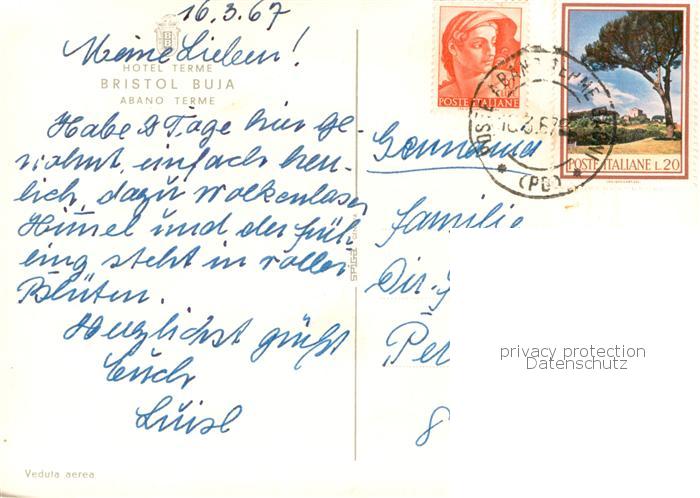 16.3.67
Meine Lieben!
HOTEL TERME
BRISTOL BUJA
ABANO TERME
Habe 2 Tage hier ge-
wohnt, einfach herr-
lich, dazu wolkenlosen
Himel und der Früh-
ling steht in vollen
Blüten.
Herzlichst grüßt
Euch
Luisl
Veduta aerea
POSTE ITALIANE
POSTE ITALIANE L.20
ABANO TERME
(PD)
Germania
Familie
Dir.
Per
8
privacy protection
Datenschutz